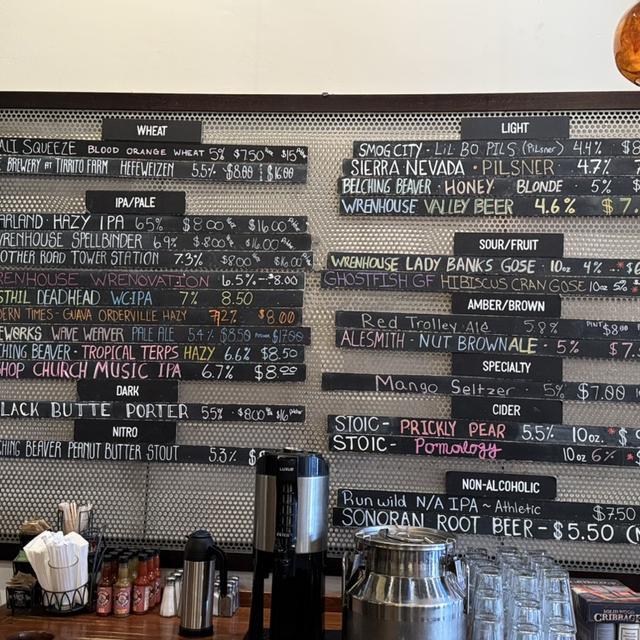 WHEAT
ALL SQUEEZE BLOOD ORANGE WHEAT 5% $7.50 $15
BREWERY AT TIRRITO FARM HEFEWEIZEN 5.5% $8.00 $16.00
IPA/PALE
ARLAND HAZY IPA 6.5% $8.00 $16.00
WRENHOUSE SPELLBINDER 6.9% $8.00 $16.00
OTHER ROAD TOWER STATION 7.3% $8.00 $16.00
RENHOUSE WRENOVATION 6.5% - $8.00
STHIL DEADHEAD WCIPA 7% 8.50
DERN TIMES - GUAVA ORDERVILLE HAZY 7.2% $8.00
EWORKS WAVE WEAVER PALE ALE 5.4% $8.50 $17.00
CHING BEAVER - TROPICAL TERPS HAZY 6.6% $8.50
SHOP CHURCH MUSIC IPA 6.7% $8.00
DARK
LACK BUTTE PORTER 5.5% - $8.00 $16
NITRO
CHING BEAVER PEANUT BUTTER STOUT 5.3% $
LIGHT
SMOG CITY - LIL BO PILS (PiLsner) 4.4% $8
SIERRA NEVADA - PILSNER 4.7% 7
BELCHING BEAVER - HONEY BLONDE - 5% $
WRENHOUSE VALLEY BEER 4.6% $7.
SOUR/FRUIT
WRENHOUSE LADY BANKS GOSE - 10oz 4%
GHOSTFISH GF HIBISCUS CRAN GOSE 10oz 5%
AMBER/BROWN
Red Trolley Ale 5.8% PINT $8.00
ALESMITH - NUT BROWN ALE - 5% $7.
SPECIALTY
Mango Seltzer 5% $7.00
CIDER
STOIC - PRICKLY PEAR 5.5% 10oz.
STOIC - Pomology 10oz 6%
NON-ALCOHOLIC
Run wild N/A IPA ~ Athletic $7.50
SONORAN ROOT BEER - $5.50 (N
LUXUS
CRIBBAGE